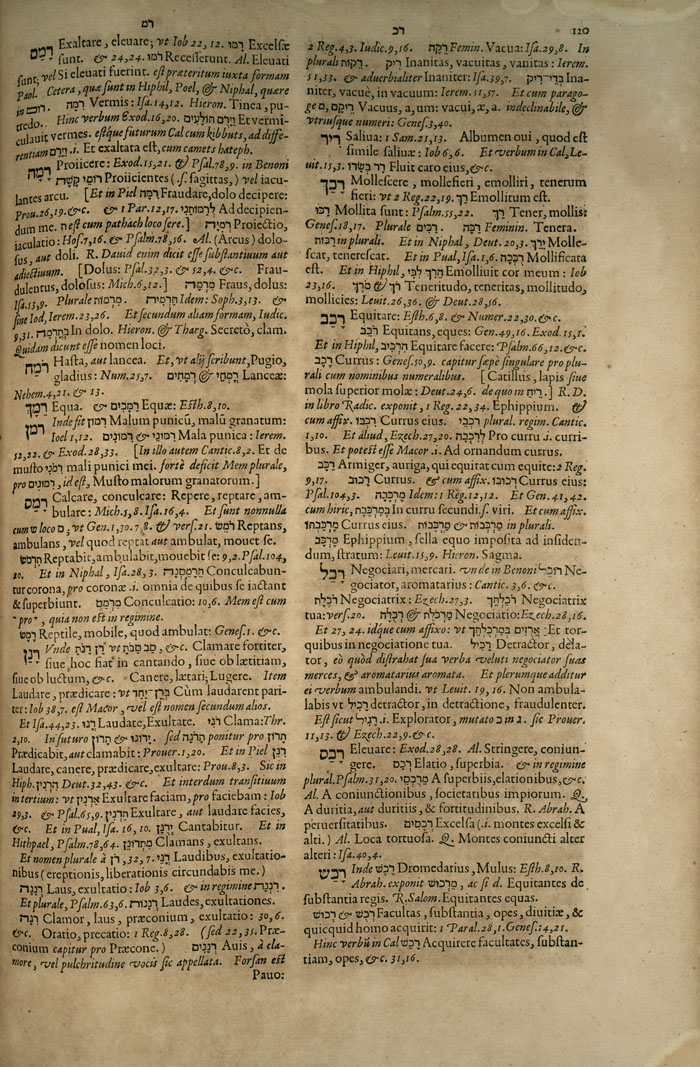 רכ 120
2 Reg.4,3. Iudic.9,16. רֵקָה Femin. Vacua: Isa.29,8. In
plurali רֵקוֹת. רִיק Inanitas, vacuitas, vanitas: Ierem.
51,33. & adverbialiter Inaniter: Isa.39,7. בְּדֵי־רִיק Ina-
niter, vacuè, in vacuum: Ierem.51,57. Et cum parago-
ge רֵיקָם, Vacuus, a, um: vacui, æ, a. indeclinabile, &
vtriusque numeri: Genes.3,40.
רִיר Saliua: 1 Sam.21,13. Albumen oui, quod est
simile saliuæ: Iob 6,6. Et verbum in Cal, Le-
uit.15,3. רָר בְּשָׂרוֹ Fluit caro eius, &c.
רָכַךְ Mollescere, mollefieri, emolliri, tenerum
fieri: vt 2 Reg.22,19. רַךְ Emollitum est.
רַכּוּ Mollita sunt: Psalm.55,22. רַךְ Tener, mollis:
Genes.18,17. Plurale רַכִּים. רַכָּה Feminin. Tenera.
רַכּוֹת in plurali. Et in Niphal, Deut. 20,3. יֵרַךְ Molle-
scat, tenerescat. Et in Pual, Isa.1,6. רֻכְּכָה Mollificata
est. Et in Hiphil, הֵרַךְ לִבִּי Emolliuit cor meum: Iob
23,16. רֹךְ & מֹרֶךְ Teneritudo, teneritas, mollitudo,
mollicies: Leuit.26,36. & Deut.28,56.
רָכַב Equitare: Esth.6,8. & Numer.22,30. &c.
רֹכֵב Equitans, eques: Gen.49,16. Exod.15,1.
Et in Hiphil, הִרְכִּיב Equitare facere: Psalm.66,12. &c.
רֶכֶב Currus: Genes.50,9. capitur sæpè singulare pro plu-
rali cum nominibus numeralibus. [Catillus, lapis siue
mola superior molæ: Deut.24,6. de quo in רֵיחַ.] R. D.
in libro Radic. exponit, 1 Reg.22,34. Ephippium. &
cum affix. רִכְבּוֹ Currus eius. רִכְבֵי plural. regim. Cantic.
1,10. Et aliud, Ezech.27,20. לְרִכְבָּה Pro curru .i. curri-
bus. Et potest esse Macor .i. Ad ornandum currus.
רַכָּב Armiger, auriga, qui equitat cum equite: 2 Reg.
9,17. רְכוּב Currus. & cum affix. רְכוּבוֹ Currus eius:
Psal.104,3. מֶרְכָּבָה Idem: 1 Reg.12,12. Et Gen.41,42.
cum hiric, בְּמִרְכֶּבֶת In curru secundi.ſ. viri. Et cum affix.
מֶרְכַּבְתּוֹ Currus eius. מַרְכְּבוֹת & מֶרְכָּבוֹת in plurali.
מֶרְכָּב Ephippium, sella equo imposita ad insiden-
dum, stratum: Leuit.15,9. Hieron. Sagma.
רָכַל Negociari, mercari. vnde in Benoni רוֹכֵל Ne-
gociator, aromatarius: Cantic.3,6. &c.
רֹכֶלֶת Negociatrix: Ezech.27,3. רֹכַלְתֵּךְ Negociatrix
tua: vers.20. מַרְכֹּלֶת & רְכֻלָּה Negociatio: Ezech.28,16.
Et 27, 24. idque cum affixo: vt אֲרֻזִים בְּמַרְכֻלְתֵּךְ Et tor-
quibus in negociatione tua. רָכִיל Detractor, dela-
tor, eò quòd distrahat sua verba veluti negociator suas
merces, & aromatarius aromata. Et plerumque additur
ei verbum ambulandi. vt Leuit. 19, 16. Non ambula-
labis vt רָכִיל detractor, in detractione, fraudulenter.
Est sicut רְגִיל .i. Explorator, mutato כ in ג. sic Prouer.
11,13. & Ezech.22,9. &c.
רָכַס Eleuare: Exod.28,28. Al. Stringere, coniun-
gere. רֶכֶס Elatio, superbia. & in regimine
plural. Psalm.31,20. מֵרֻכְסֵי A superbiis, elationibus, &c.
Al. A coniunctionibus, societatibus impiorum. Q.
A duritia, aut duritiis, & fortitudinibus. R. Abrah. A
peruersitatibus. רְכָסִים Excelsa (.i. montes excelsi &
alti.) Al. Loca tortuosa. Q. Montes coniuncti alter
alteri: Isa.40,4.
רֶכֶשׁ Inde רֶכֶשׁ Dromedarius, Mulus: Esth.8,10. R.
Abrah. exponit רְכוּשׁ, ac si d. Equitantes de
substantia regis. R. Salom. Equitantes equas.
רְכֻשׁ & רְכוּשׁ Facultas, substantia, opes, diuitiæ, &
quicquid homo acquirit: 1 Paral.28,1. Genes.14,21.
Hinc verbū in Cal רָכַשׁ Acquirere facultates, substan-
tiam, opes, &c. 31,16.
רם
רָמַם Exaltare, eleuare; vt Iob 22, 12. רָמּוּ Excelsæ
sunt. & 24,24. רֹמּוּ Recesserunt. Al. Eleuati
sunt, vel Si eleuati fuerint. est præteritum iuxta formam
Paol. Cetera, quæ sunt in Hiphil, Poel, & Niphal, quære
in רוּם. רִמָּה Vermis: Isa.14,12. Hieron. Tinea, pu-
tredo. Hinc verbum Exod.16,20. וַיָּרֻם תּוֹלָעִים Et vermi-
culauit vermes. estque futurum Cal cum kibbuts, ad diffe-
rentiam וַיָּרָם .i. Et exaltata est, cum camets hateph.
רָמָה Proiicere: Exod.15,21. & Psal.78,9. in Benoni
רוֹמֵי קֶשֶׁת Proiicientes (.ſ. sagittas,) vel iacu-
lantes arcu. [Et in Piel רִמָּה Fraudare, dolo decipere:
Prou.26,19. &c. & 1 Par.12,17. לְרַמּוֹתַנִי Ad decipien-
dum me. נ est cum pathach loco sere.] רְמִיָּה Proiectio,
iaculatio: Hos.7,16. & Psalm.78,56. Al. (Arcus) dolo-
sus, aut doli. R. Dauid enim dicit esse substantiuum aut
adiectiuum. [Dolus: Psal.32,3. & 52,4. &c. Frau-
dulentus, dolosus: Mich.6,12.] מִרְמָה Fraus, dolus:
Isa.53,9. Plurale מִרְמוֹת. תַּרְמִית Idem: Soph.3,13. &
sine Iod, Ierem.23,26. Et secundum aliam formam, Iudic.
9,31. בְּתָרְמָה In dolo. Hieron. & Tharg. Secretò, clam.
Quidam dicunt esse nomen loci.
רֹמַח Hasta, aut lancea. Et, vt alij scribunt, Pugio,
gladius: Num.25,7. רְמָחִים & רָמְחֵי Lanceæ:
Nehem.4,21. & 13.
רַמָּךְ Equa. & רַמָּכִים Equæ: Esth.8,10.
רִמּוֹן Inde fit רִמּוֹן Malum punicū, malū granatum:
Ioel 1,12. רִמּוֹנִים & רִמּוֹנֵי Mala punica: Ierem.
52,22. & Exod.28,33. [In illo autem Cantic.8,2. Et de
musto רִמֹּנִי mali punici mei. fortè deficit Mem plurale,
pro רִמּוֹנִים, id est, Musto malorum granatorum.]
רָמַס Calcare, conculcare: Repere, reptare, am-
bulare: Mich.5,8. Isa.16,4. Et sunt nonnulla
cum שׂ loco ס, vt Gen.1,30. 7,8. & vers.21. רֹמֵשׂ Reptans,
ambulans, vel quod reptat aut ambulat, mouet se.
תִּרְמֹשׂ Reptabit, ambulabit, mouebit se: 9,2. Psal.104,
20. Et in Niphal, Isa.28, 3. תֵּרָמַסְנָה Conculcabun-
tur corona, pro coronæ .i. omnia de quibus se iactant
& superbiunt. מִרְמָס Conculcatio: 10,6. Mem est cum
pro, quia non est in regimine.
רֶמֶשׂ Reptile, mobile, quod ambulat: Genes.1. &c.
רָנַן Vnde רָנַן רָנָּה vt סַב סָבַב, &c. Clamare fortiter,
siue hoc fiat in cantando, siue ob lætitiam,
siue ob luctum, &c. Canere, lætari; Lugere. Item
Laudare, prædicare: vt בְּרָן־יַחַד Cùm laudarent pari-
ter: Iob 38,7. est Macor, vel est nomen secundum alios.
Et Isa.44,23. רָנּוּ Laudate, Exultate. רֹנִּי Clama: Thr.
2,10. In futuro תָּרֹן & יָרֹנּוּ. sed תָּרֹנָּה ponitur pro תָּרֹן
Prædicabit, aut clamabit: Prouer.1,20. Et in Piel רִנֵּן
Laudare, canere, prædicare, exultare: Prou.8,3. Sic in
Hiph. הַרְנִין, Deut.32,43. &c. Et interdum transitiuum
in tertium: vt אַרְנִן Exultare faciam, pro faciebam: Iob
29,3. & Psal.65,9. תַּרְנִין Exultare, aut laudare facies,
&c. Et in Pual, Isa. 16, 10. יְרֻנָּן Cantabitur. Et in
Hithpael, Psalm.78,64. מִתְרוֹנֵן Clamans, exultans.
Et nomen plurale à רֹן, 32, 7. רָנֵּי Laudibus, exultatio-
nibus (ereptionis, liberationis circundabis me.)
רְנָנָה Laus, exultatio: Iob 3,6. & in regimine רִנְנַת.
Et plurale, Psalm.63,6. רְנָנוֹת Laudes, exultationes.
רִנָּה Clamor, laus, præconium, exultatio: 30, 6.
&c. Oratio, precatio: 1 Reg.8,28. (sed 22,35. Præ-
conium capitur pro Præcone.) רְנָנִים Auis, à cla-
more, vel pulchritudine vocis sic appellata. Forsan est
Pauo: